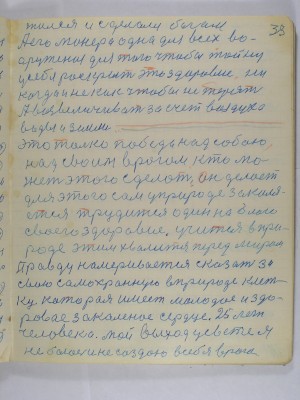 33
жался и сделали богам
Аего манера одна для всех во-
оружения для того чтобы той ку
уебя раскрыть это здоровие, ни
когда и не как чтобы не терять
А ввеличивать за счет воздуха
воды и земли.
это только победа над собою,
над своим врогом. кто мо-
жет этого сделать, он делает
для этого сам у природе закаля-
ется трудится один на благо
своего здоровие, учится в при-
роде этим хвалится перед миром
Правду намеривается сказать за
свою самохранную в природе клет-
ку, каторая имеет молодое и здо-
ровае закаленое сердце. 25 лет
человека. мой выход условием
не болеть не создаю в себя врага